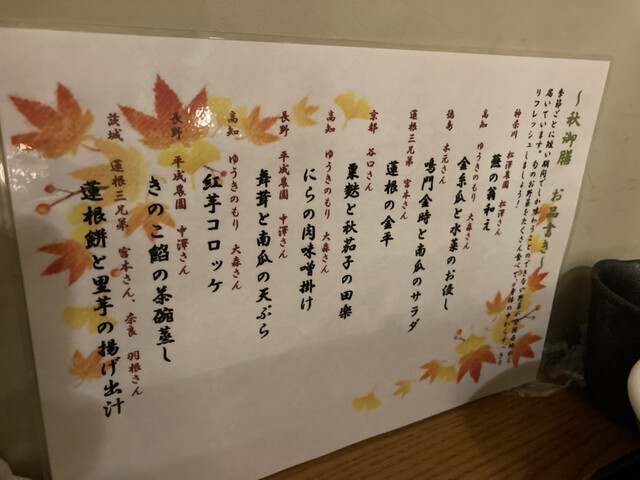 ～秋御膳 お品書き～
季節ごとに短い期間でしか味わうことのできない
届いています。旬のお野菜をたくさん食べて
リフレッシュしましょう！
神奈川 松澤農園 松澤さん
蕪の翁和え
高知 ゆうきのもり 大森さん
金糸瓜と水菜のお浸し
徳島 木元さん
鳴門金時と南瓜のサラダ
蓮根三兄弟 宮本さん
蓮根の金平
京都 谷口さん
粟麩と秋茄子の田楽
高知 ゆうきのもり 大森さん
にらの肉味噌掛け
長野 平成農園 中澤さん
舞茸と南瓜の天ぷら
高知 ゆうきのもり 大森さん
紅芋コロッケ
長野 平成農園 中澤さん
きのこ餡の茶碗蒸し
茨城 蓮根三兄弟 宮本さん、奈良 羽根さん
蓮根餅と里芋の揚げ出汁